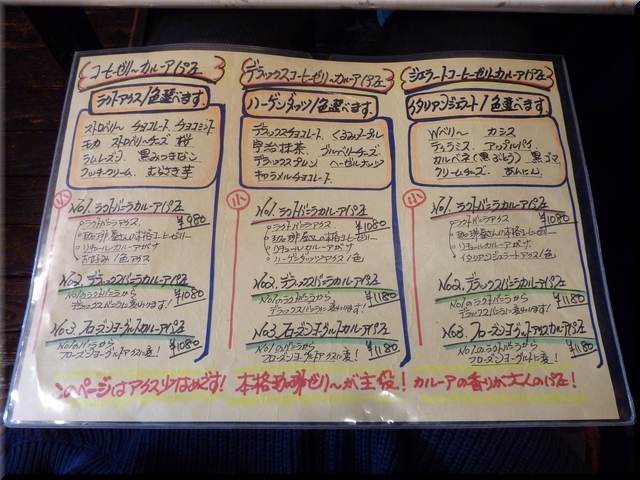 コーヒーゼリーカルーアパフェ
ラクトアイス1色選べます。
ストロベリー チョコレート チョコミント
モカ ストロベリーチーズ 桜
ラムレーズン 黒みつきなこ
クッキークリーム むらさき芋
小
No.1. ラクトバニラカルーアパフェ
¥980
ラクトバニラアイス
珈琲屋さんの本格コーヒーゼリー
リキュールカルーアがけ
お好み1色アイス
No.2. デラックスバニラカルーアパフェ
No.1のラクトバニラから
デラックスバニラに変わります!
¥1080
No.3. フローズンヨーグルトカルーアパフェ
No.1のバニラから
フローズンヨーグルトアイスに変!
¥1080
デラックスコーヒーゼリーカルーアパフェ
ハーゲンダッツ1色選べます。
デラックスチョコレート くるみメープル
宇治抹茶 ブルーベリーチーズ
デラックスマロン ヘーゼルナッツ
キャラメルチョコレート
小
No.1. ラクトバニラカルーアパフェ
¥1080
ラクトバニラアイス
珈琲屋さんの本格コーヒーゼリー
リキュールカルーアがけ
ハーゲンダッツアイス1色
No.2. デラックスバニラカルーアパフェ
No.1のラクトバニラから
デラックスバニラに変わります!
¥1180
No.3. フローズンヨーグルトカルーアパフェ
No.1のバニラから
フローズンヨーグルトアイスに変!
¥1180
ジェラートコーヒーゼリーカルーアパフェ
イタリアンジェラート1色選べます。
Wベリー カシス
ティラミス アップルパイ
カルベネ(黒ぶどう) 黒ゴマ
クリームチーズ あんにん
小
No.1. ラクトバニラカルーアパフェ
¥1080
ラクトバニラアイス
珈琲屋さんの本格コーヒーゼリー
リキュールカルーアがけ
イタリアンジェラートアイス1色
No.2. デラックスバニラカルーアパフェ
No.1のラクトバニラから
デラックスバニラに変わります!
¥1180
No.3. フローズンヨーグルトアイスカルーアパフェ
No.1のラクトバニラから
フローズンヨーグルトに変!
¥1180
このページはアイス少なめです! 本格珈琲ゼリーが主役! カルーアの香りが大人のパフェ!